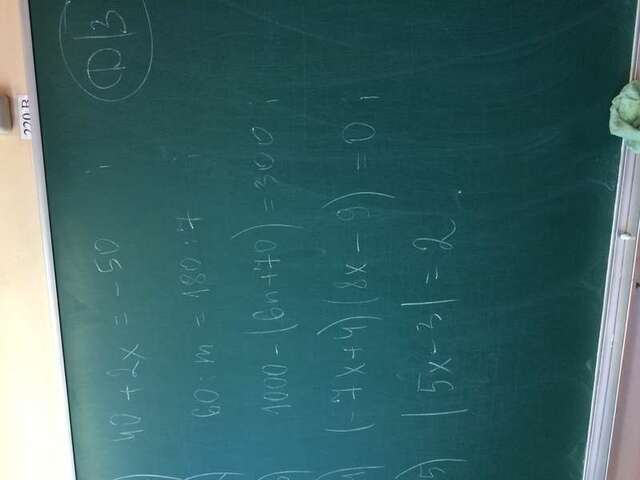 ФІЗ
) 40 + 2x = -50 ;
) 60 : m = 180 : 7 ;
) 1000 - (6n + 70) = 300 ;
4) (-7x + 4) (8x - 9) = 0 ;
5) |5x - 3| = 2 .